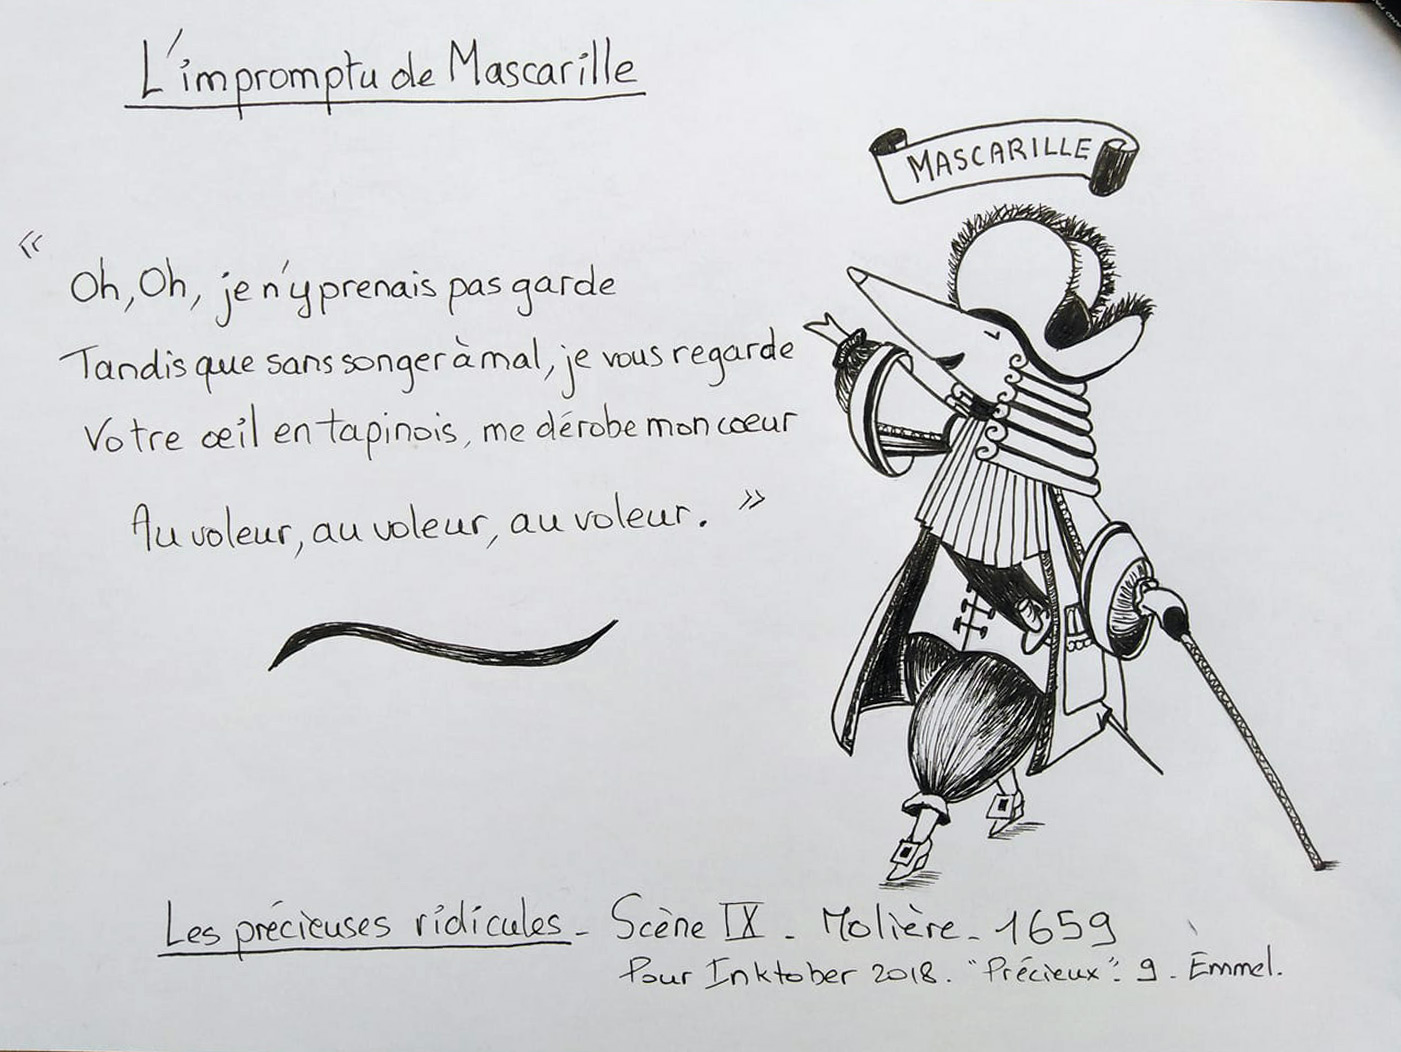 L'impromptu de Mascarille
MASCARILLE
« Oh, Oh, je n'y prenais pas garde
Tandis que sans songer à mal, je vous regarde
Votre œil en tapinois, me dérobe mon cœur
Au voleur, au voleur, au voleur. »
Les précieuses ridicules - Scène IX - Molière - 1659
Pour Inktober 2018. "Précieux": 9 - Emmel.